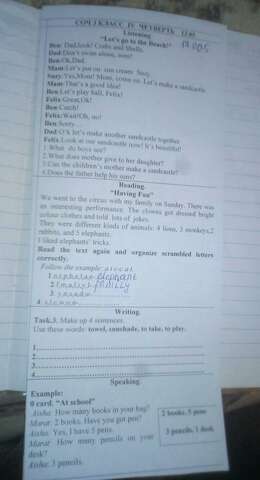 СОЧ 3 КЛАСС IV ЧЕТВЕРТЬ
Listening
"Let's go to the Beach!"
Ben: Dad,look! Crabs and Shells.
Dad:Don't swim alone, sons!
Ben:Ok,Dad.
Mum:Let's put on sun cream Suzy.
Suzy:Yes,Mum! Mum, come on. Let's make a sandcastle.
Mum:That's a good idea!
Ben:Let's play ball, Felix!
Felix:Great,Ok!
Ben:Catch!
Felix:Wait!Oh, no!
Ben:Sorry
Dad:O'k let's make another sandcastle together
Felix:Look at our sandcastle now! It's beautiful!
1.What do boys see?
2.What does mother give to her daughter?
3.Can the children's mother make a sandcastle?
4.Does the father help his sons?
Reading.
"Having Fun"
We went to the circus with my family on Sunday. There was
an interesting performance. The clowns got dressed bright
colour clothes and told lots of jokes.
They were different kinds of animals: 4 lions, 3 monkeys,2
rabbits, and 5 elephants.
I liked elephants' tricks.
Read the text again and organize scrambled letters
correctly.
Follow the example:
Writing.
Task.3. Make up 4 sentences.
Use these words: towel, sunshade, to take, to play.
1.
2.
3.
4.
Speaking
Example:
0 card. "At school"
Aisha: How many books in your bag?
Marat: 2 books. Have you got pen?
Aisha: Yes, I have 5 pens.
Marat: How many pencils on your
desk?
Aisha: 3 pencils.
2 books, 5 pens
3 pencils, 1 desk